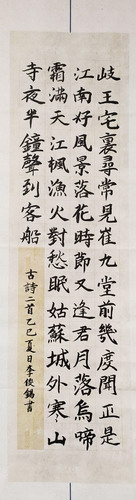 岐王宅裏尋常見崔九堂前幾度聞正是
江南好風景落花時節又逢君月落烏啼
霜滿天江楓漁火對愁眠姑蘇城外寒山
寺夜半鐘聲到客船
古詩二首乙巳夏日李俊錫書